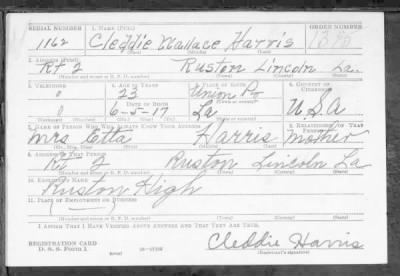 SERIAL NUMBER 1. NAME (Print) ORDER NUMBER
1162 Cleddie Wallace Harris
2. ADDRESS (Print)
Rt 2 Ruston Lincoln La.
(Number and street or R. F. D. number) (Town) (County) (State)
3. TELEPHONE 4. AGE IN YEARS 5. PLACE OF BIRTH 6. COUNTRY OF CITIZENSHIP
0 23 Union Pa
DATE OF BIRTH
0 6-5-17 La U.S.A
7. NAME OF PERSON WHO WILL ALWAYS KNOW YOUR ADDRESS 8. RELATIONSHIP OF THAT PERSON
Mrs Etta Harris Mother
(Mr., Mrs., Miss) (First) (Middle) (Last)
9. ADDRESS OF THAT PERSON
Rt 2 Ruston Lincoln La
(Number and street or R. F. D. number) (Town) (County) (State)
10. EMPLOYER'S NAME
Ruston High
11. PLACE OF EMPLOYMENT OR BUSINESS
(Number and street or R. F. D. number) (Town) (County) (State)
I AFFIRM THAT I HAVE VERIFIED ABOVE ANSWERS AND THAT THEY ARE TRUE.
REGISTRATION CARD
D. S. S. Form 1 (over) Cleddie Harris
(Registrant's signature)